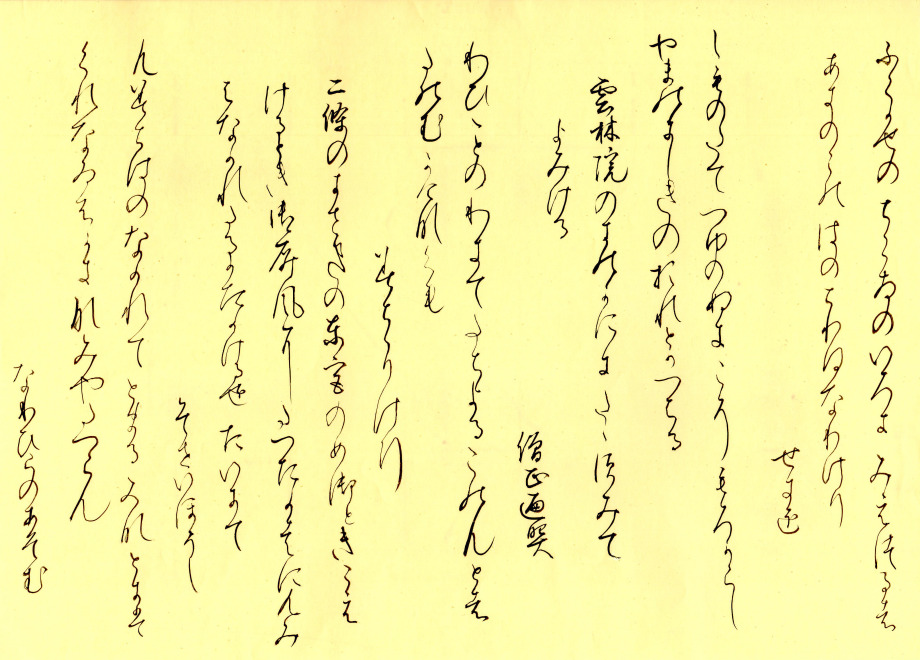 ふくかせのちくさのいろにみえつるは
あきのこのはのちれはなりけり
せきを
しものたてつゆのぬきこそもろからし
やまのにしきのおれはかつちる
雲林院のきのかけにたゝすみて
よみける
僧正遍照
わひゝとのわきてたちよるこのもとは
たのむかけなくも
みちちりけり
二條のきさきの東宮の女御ときこえ
けるとき御屏風にたつたかはにもみ
ちなかれたるかたかけるをたいにて
そせいほうし
もみちはのなかれてとまるみなとには
くれなゐふかきなみやたつらん
なりひらのあそむ